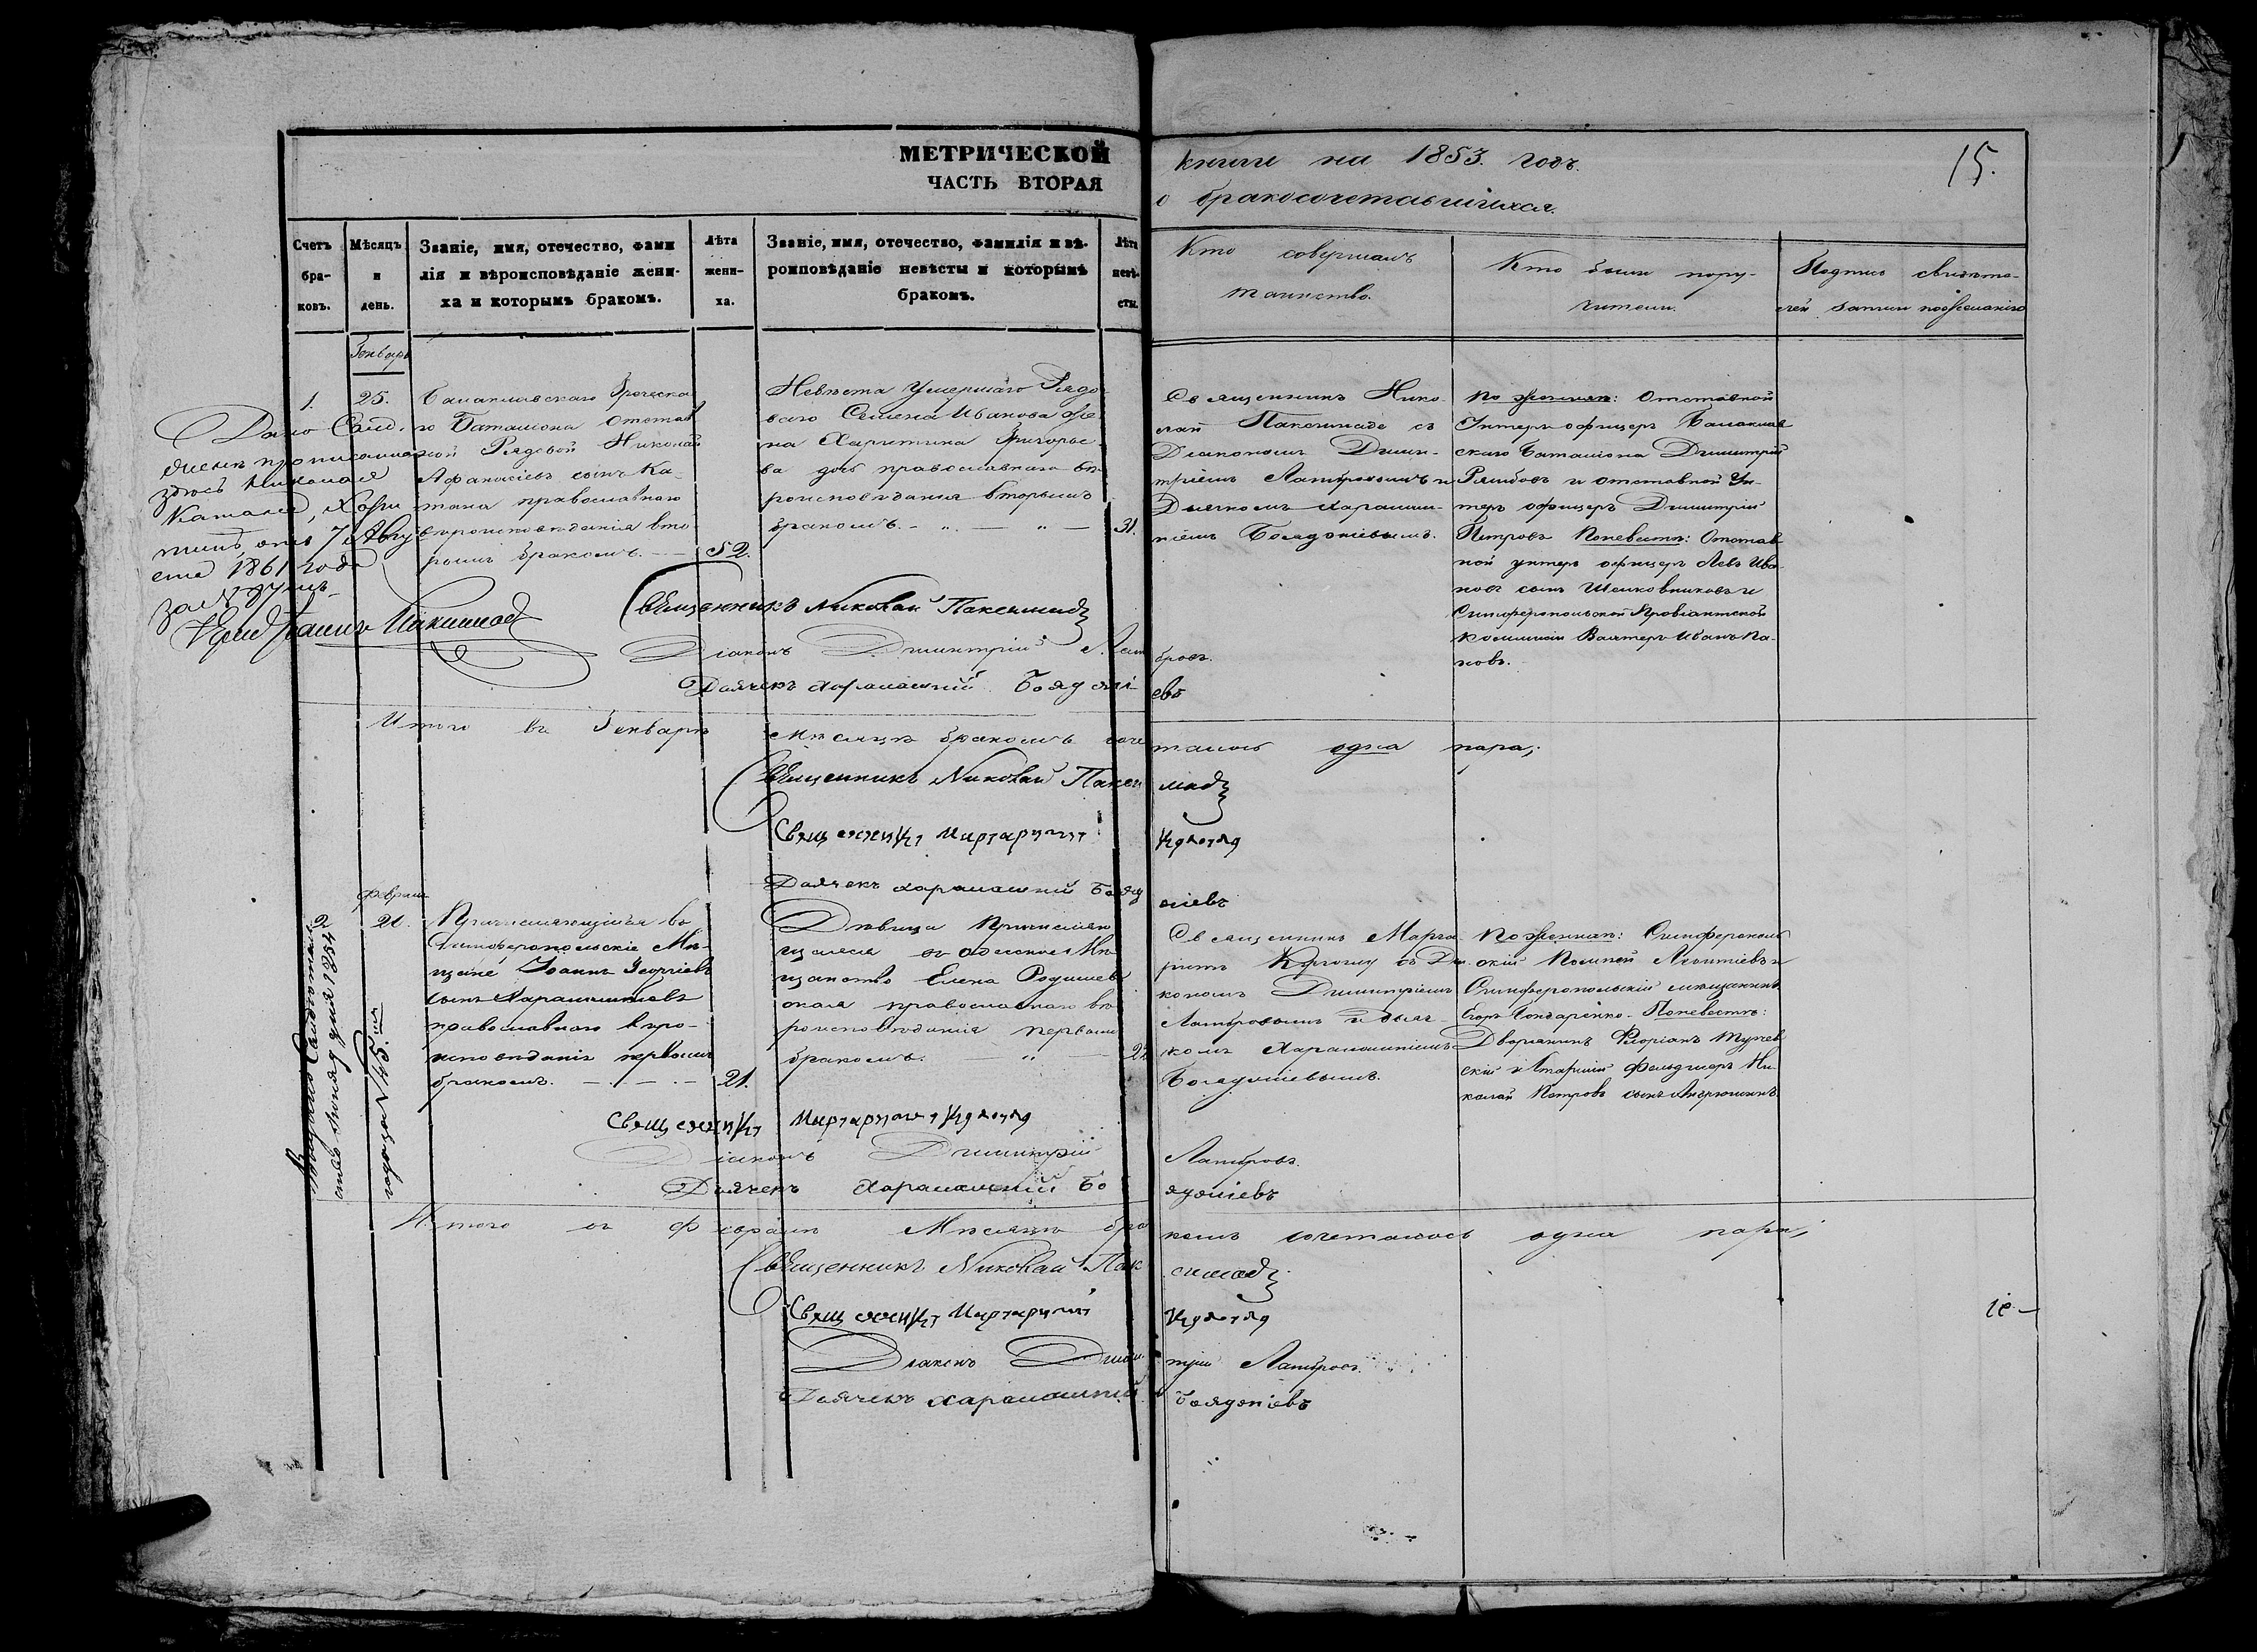 МЕТРИЧЕСКОЙ
ЧАСТЬ ВТОРАЯ
книги на 1853. годъ.
о бракосочетавшихся.
15.
Счетъ бра-ковъ.
Мѣсяцъ и день.
Званіе, имя, отечество, фами
лія и вѣроисповѣданіе жени-
ха и которымъ бракомъ.
Лѣта жени-ха.
Званіе, имя, отечество, фамилія и вѣ-
роисповѣданіе невѣсты и которымъ
бракомъ.
Лѣта невѣ-сты.
Кто совершалъ
таинство.
Кто были пору-
чители.
Подпись свидѣте-
лей записи по желанію
Генварь
1.
25.
Балаклавскаго Греческа
го Баталіона Отстав
ной Рядовой Николай
Афанасіевъ сынъ Ка-
тана православнаго
вѣроисповѣданія вто-
рымъ бракомъ.
52.
Невѣста Умершаго Рядо
ваго Семена Иванова же
на Харитина Григорье
ва дочь православнаго вѣ
роисповѣданія вторымъ
бракомъ.
31.
Священникъ Нико
лай Паксимаде съ
Діакономъ Дими-
тріемъ Ламбровымъ и
Дьячкомъ Харалам-
піемъ Бояджіевымъ.
По женихѣ: Отставной
Унтеръ офицеръ Балаклав
скаго Баталіона Димитрій
и отставной Ун-
теръ офицеръ Димитрій
Петровъ По невѣстѣ: Отстав
ной унтеръ офицеръ Левъ Ива
новъ сынъ Шелковниковъ и
Симферопольской Провіантской
Коммисіи Вахтеръ Иванъ Па-
новъ.
Дано Свид.
прописанно
здѣсь Николая
Катана, Хари
тинѣ, отъ 7 Авгу
ста 1861 года
за №
Священникъ Николай Паксимадъ
Діаконъ Димитрій Ламбровъ.
Дьячекъ Харалампій Бояджіевъ
Итого въ Генварѣ Мѣсяцѣ бракомъ сочеталось одна пара;
Священникъ Николай Паксимадъ
Священникъ Маргаритъ
Дьячекъ Харалампій Бояджіевъ
2
Февраля
21.
Причисляющійся въ
Симферопольскіе Мѣ-
щане Іоаннъ Георгіевъ
сынъ Харалампіевъ
православнаго вѣро-
исповѣданія первымъ
бракомъ.
21.
Дѣвица Причисляю
щаяся въ Одесское Мѣ
щанство Елена
православнаго вѣ
роисповѣданія первымъ
бракомъ.
Священникъ Марга
ритъ съ Діа
кономъ Димитріемъ
Ламбровымъ и дьяч
комъ Харалампіемъ
Бояджіевымъ.
По женихѣ: Симферополь
скій Леонтіевъ и
Симферопольскій мѣщанинъ
Егоръ Гончаренко. По невѣстѣ:
Дворянинъ Флоріанъ
скій и Старшій Фельдшеръ Ни
колай Петровъ сынъ
Выдано Свидѣтельство
іюня дня 1854
года за № 45.
Священникъ Маргаритъ
Діаконъ Димитрій Ламбровъ.
Дьячекъ Харалампій Бояджіевъ
Итого въ Февралѣ Мѣсяцѣ бракомъ сочеталось одна пара;
Священникъ Николай Паксимадъ
Священникъ Маргаритъ
Діаконъ Димитрій Ламбровъ.
Дьячекъ Харалампій Бояджіевъ